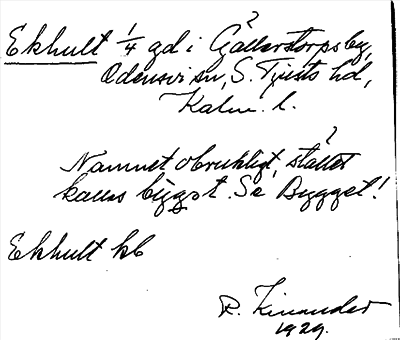 Ekhult 1/4 gd i Gällerstorps by,
Odensvi sn, S. Tjusts hd,
Kalm. l.
Namnet obrukligt, stället
kallas bygget. Se Bygget!
Ekhult kb
R. Kinander
1929.